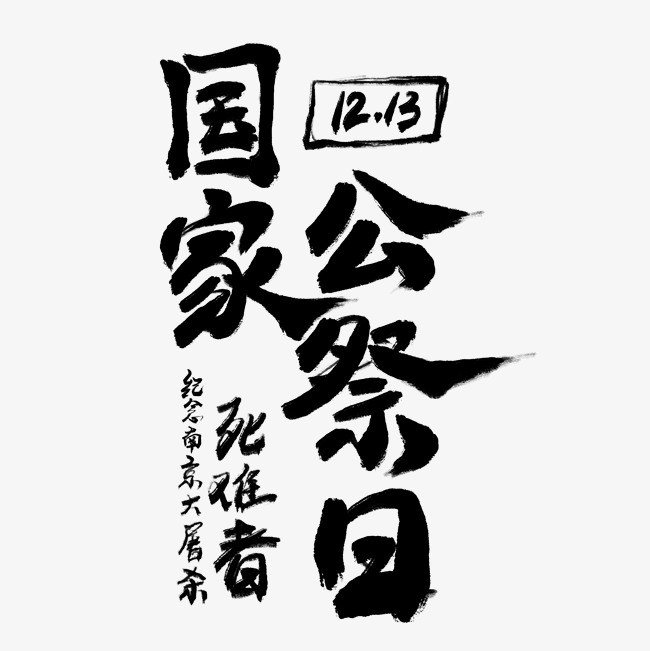 国家
12.13
公祭日
纪念南京大屠杀
死难者